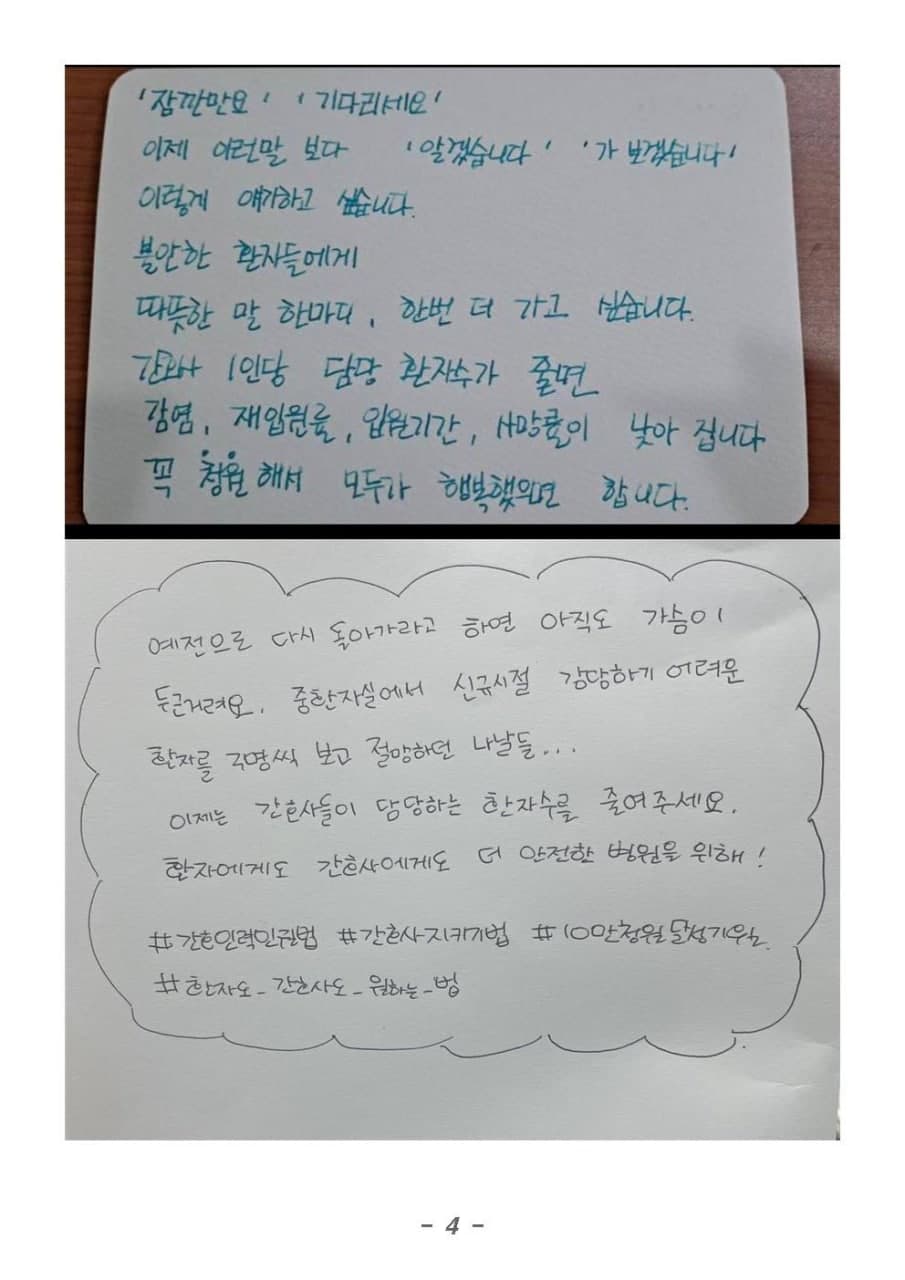 '잠깐만요' '기다리세요'
이제 이런말 보다 '알겠습니다' '가 보겠습니다'
이렇게 얘기하고 싶습니다.
불안한 환자들에게
따뜻한 말 한마디, 한번 더 가고 싶습니다.
간호사 1인당 담당 환자수가 줄면
감염, 재입원률, 입원기간, 사망률이 낮아 집니다
꼭 청원해서 모두가 행복했으면 합니다.
예전으로 다시 돌아가라고 하면 아직도 가슴이
두근거려요. 중환자실에서 신규시절 감당하기 어려운
환자를 3명씩 보고 절망하던 나날들...
이제는 간호사들이 담당하는 환자수를 줄여주세요.
환자에게도 간호사에게도 더 안전한 병원을 위해!
#간호인력인권법 #간호사지키기법 #10만청원달성기원
#환자도_간호사도_원하는_법
- 4 -